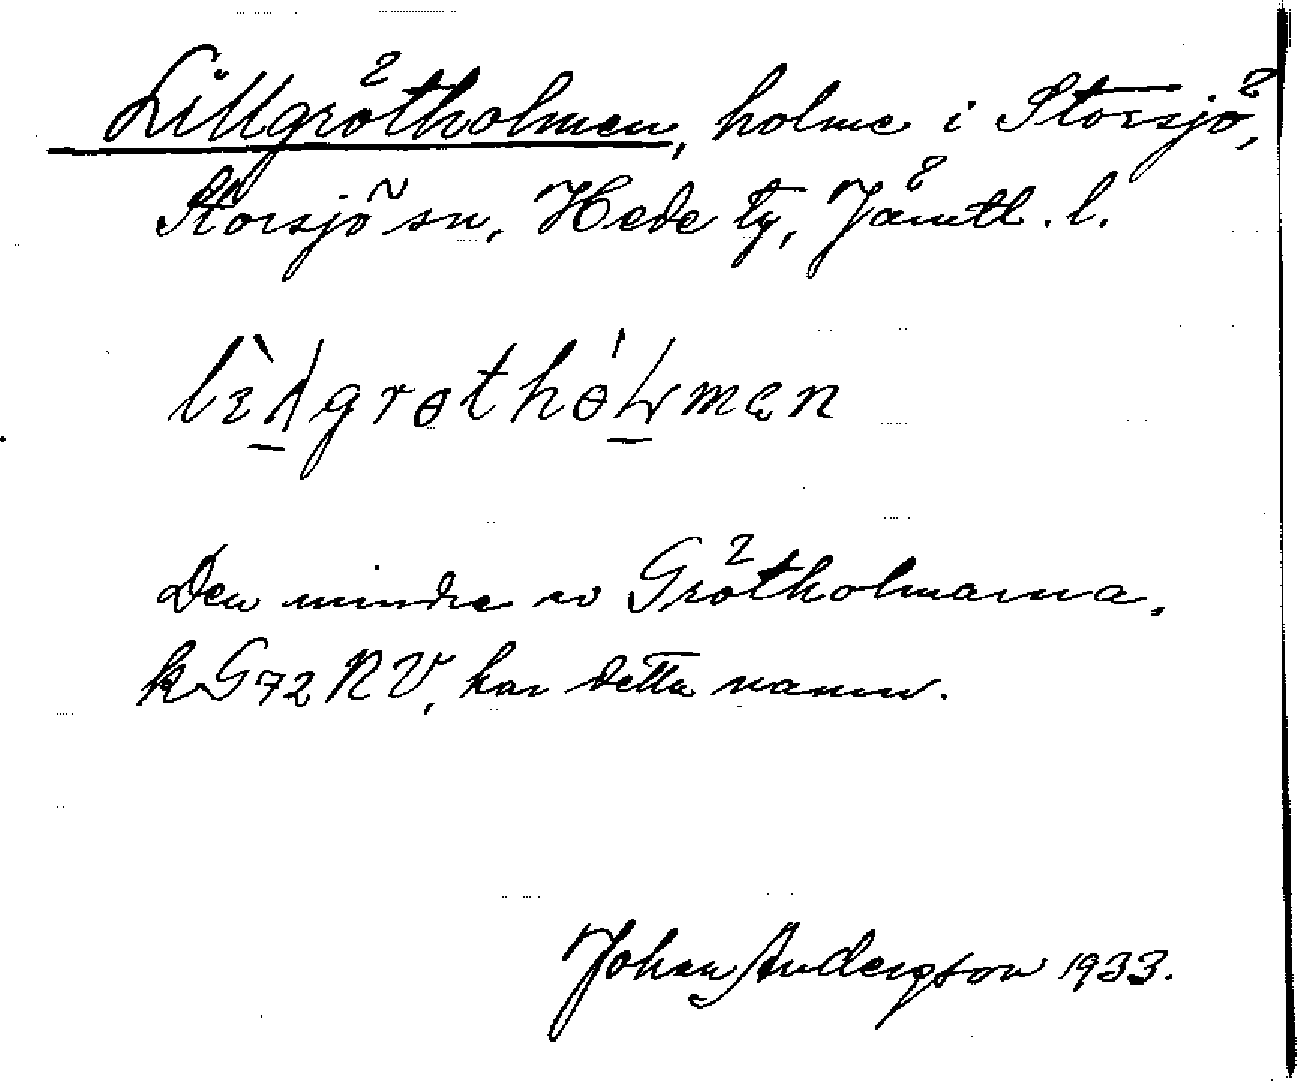 Lillgrötholmen, holme i Storsjö,
Storsjö sn, Hede tg, Jämtl. l.
Den mindre av Grötholmarna,
k G 72 NV, har detta namn.
Johan Andersson 1933.